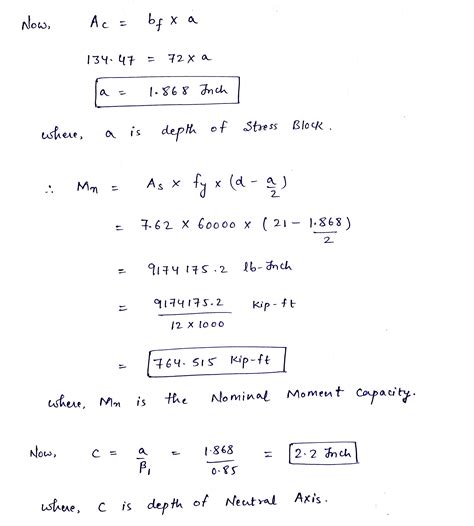 Now, Ac = bf x a
134.47 = 72 x a
a = 1.868 Inch
where, a is depth of Stress Block.
∴ Mn = As x fy x (d - a/2)
= 7.62 x 60000 x (21 - 1.868/2)
= 9174175.2 lb-Inch
= 9174175.2 / 12 x 1000 Kip-ft
= 764.515 Kip-ft
where, Mn is the Nominal Moment Capacity.
Now, C = a/β1 = 1.868/0.85 = 2.2 Inch
where, C is depth of Neutral Axis.